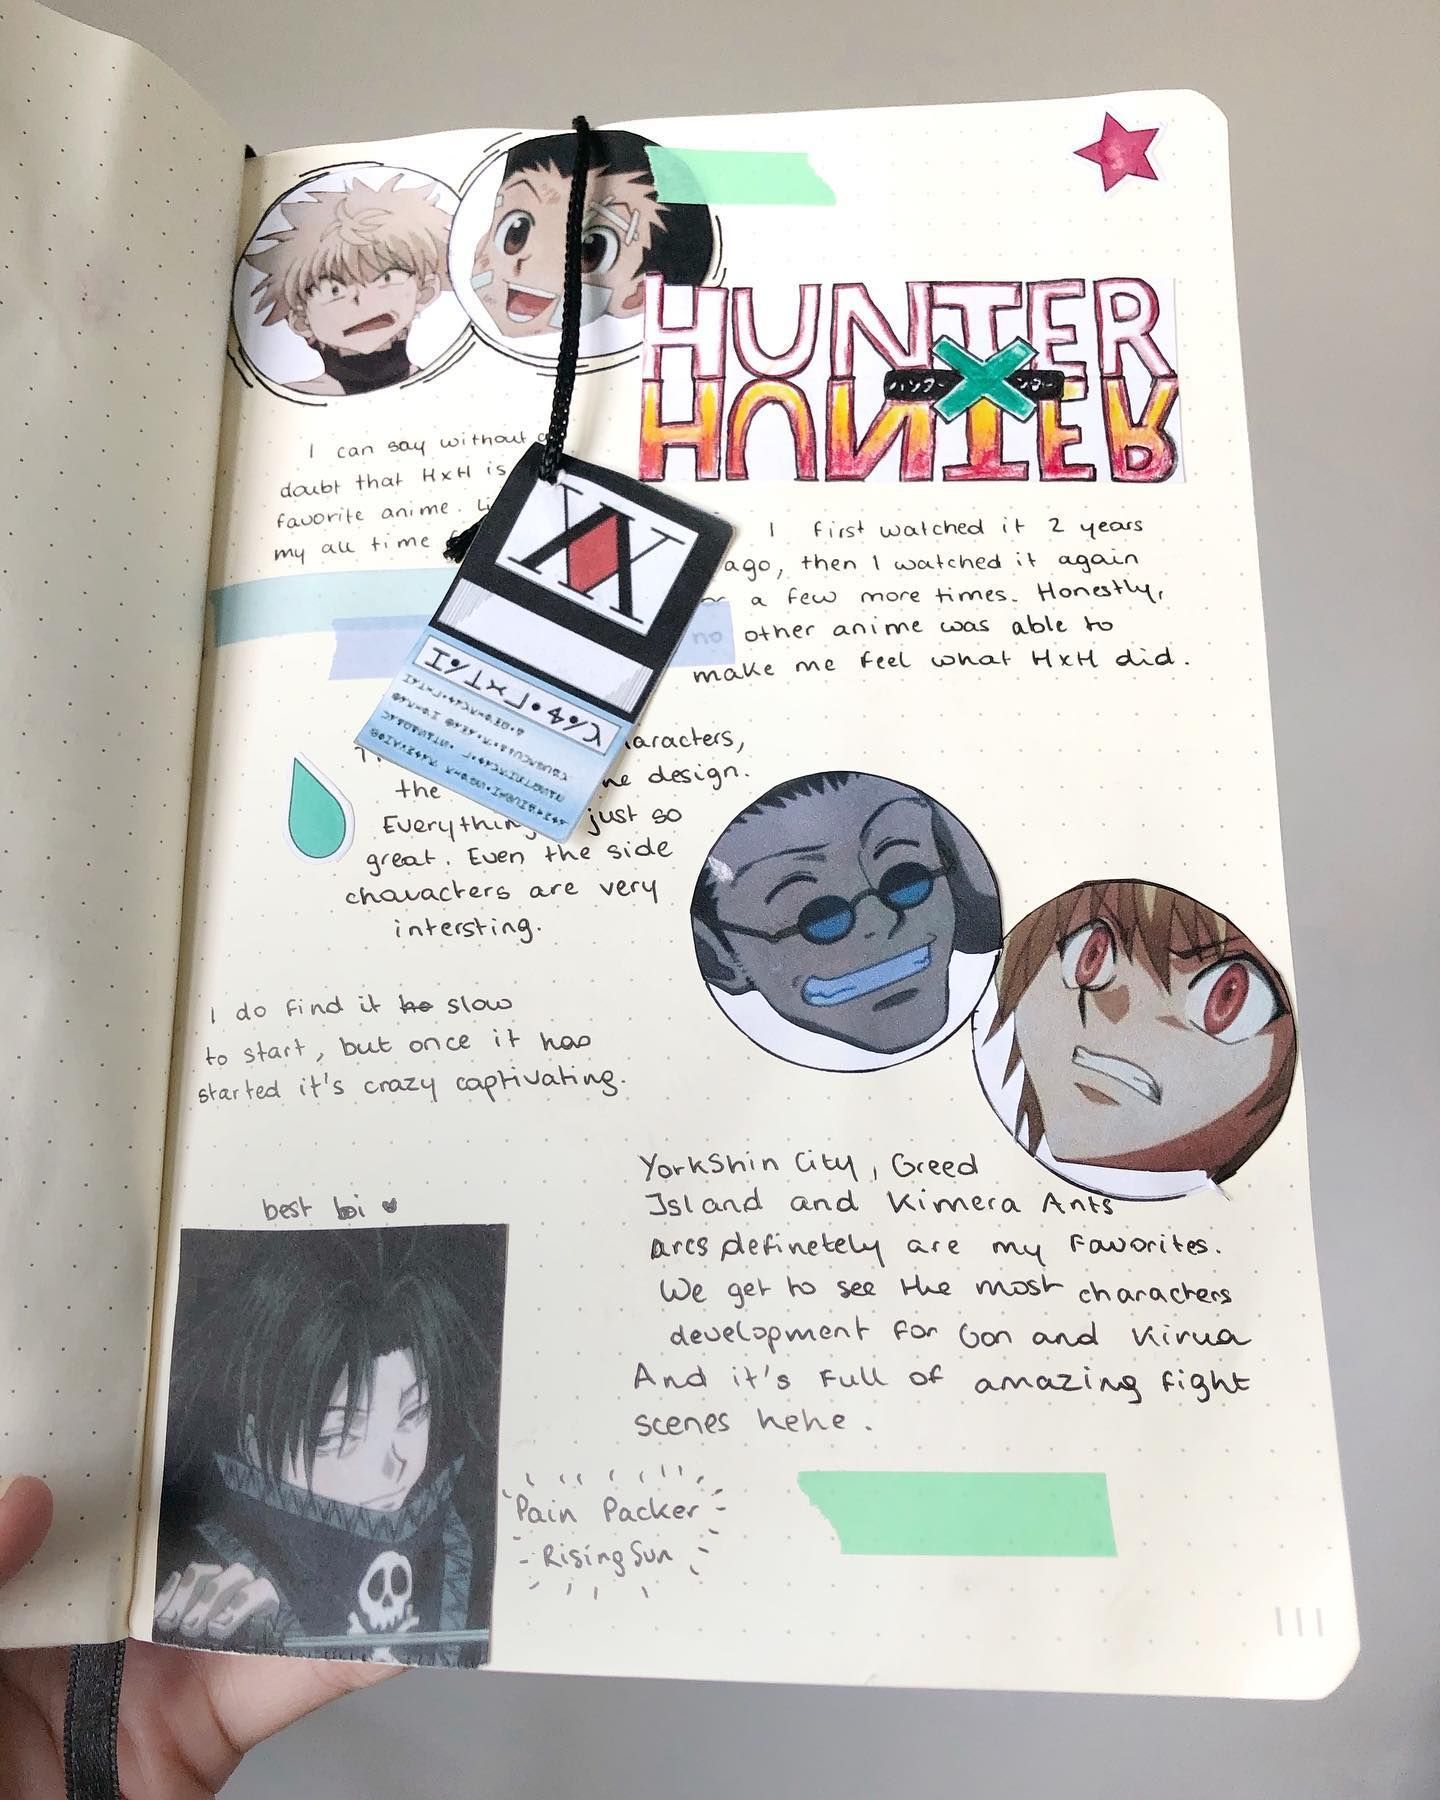 HUNTER
ハンター ハンター
X
HUNTER
I can say without a
doubt that HxH is
favorite anime.
my all time
I first watched it 2 years
ago, then I watched it again
a few more times. Honestly,
no other anime was able to
make me feel what HxH did.
aracters,
the design.
Everything just so
great. Even the side
characters are very
intersting.
I do find it slow
to start, but once it has
started it's crazy captivating.
YorkShin City, Greed
Island and Kimera Ants
arcs definetely are my favorites.
We get to see the most characters
development for Gon and Kirua
And it's full of amazing fight
scenes hehe.
best boi
Pain Packer
- Rising Sun
111